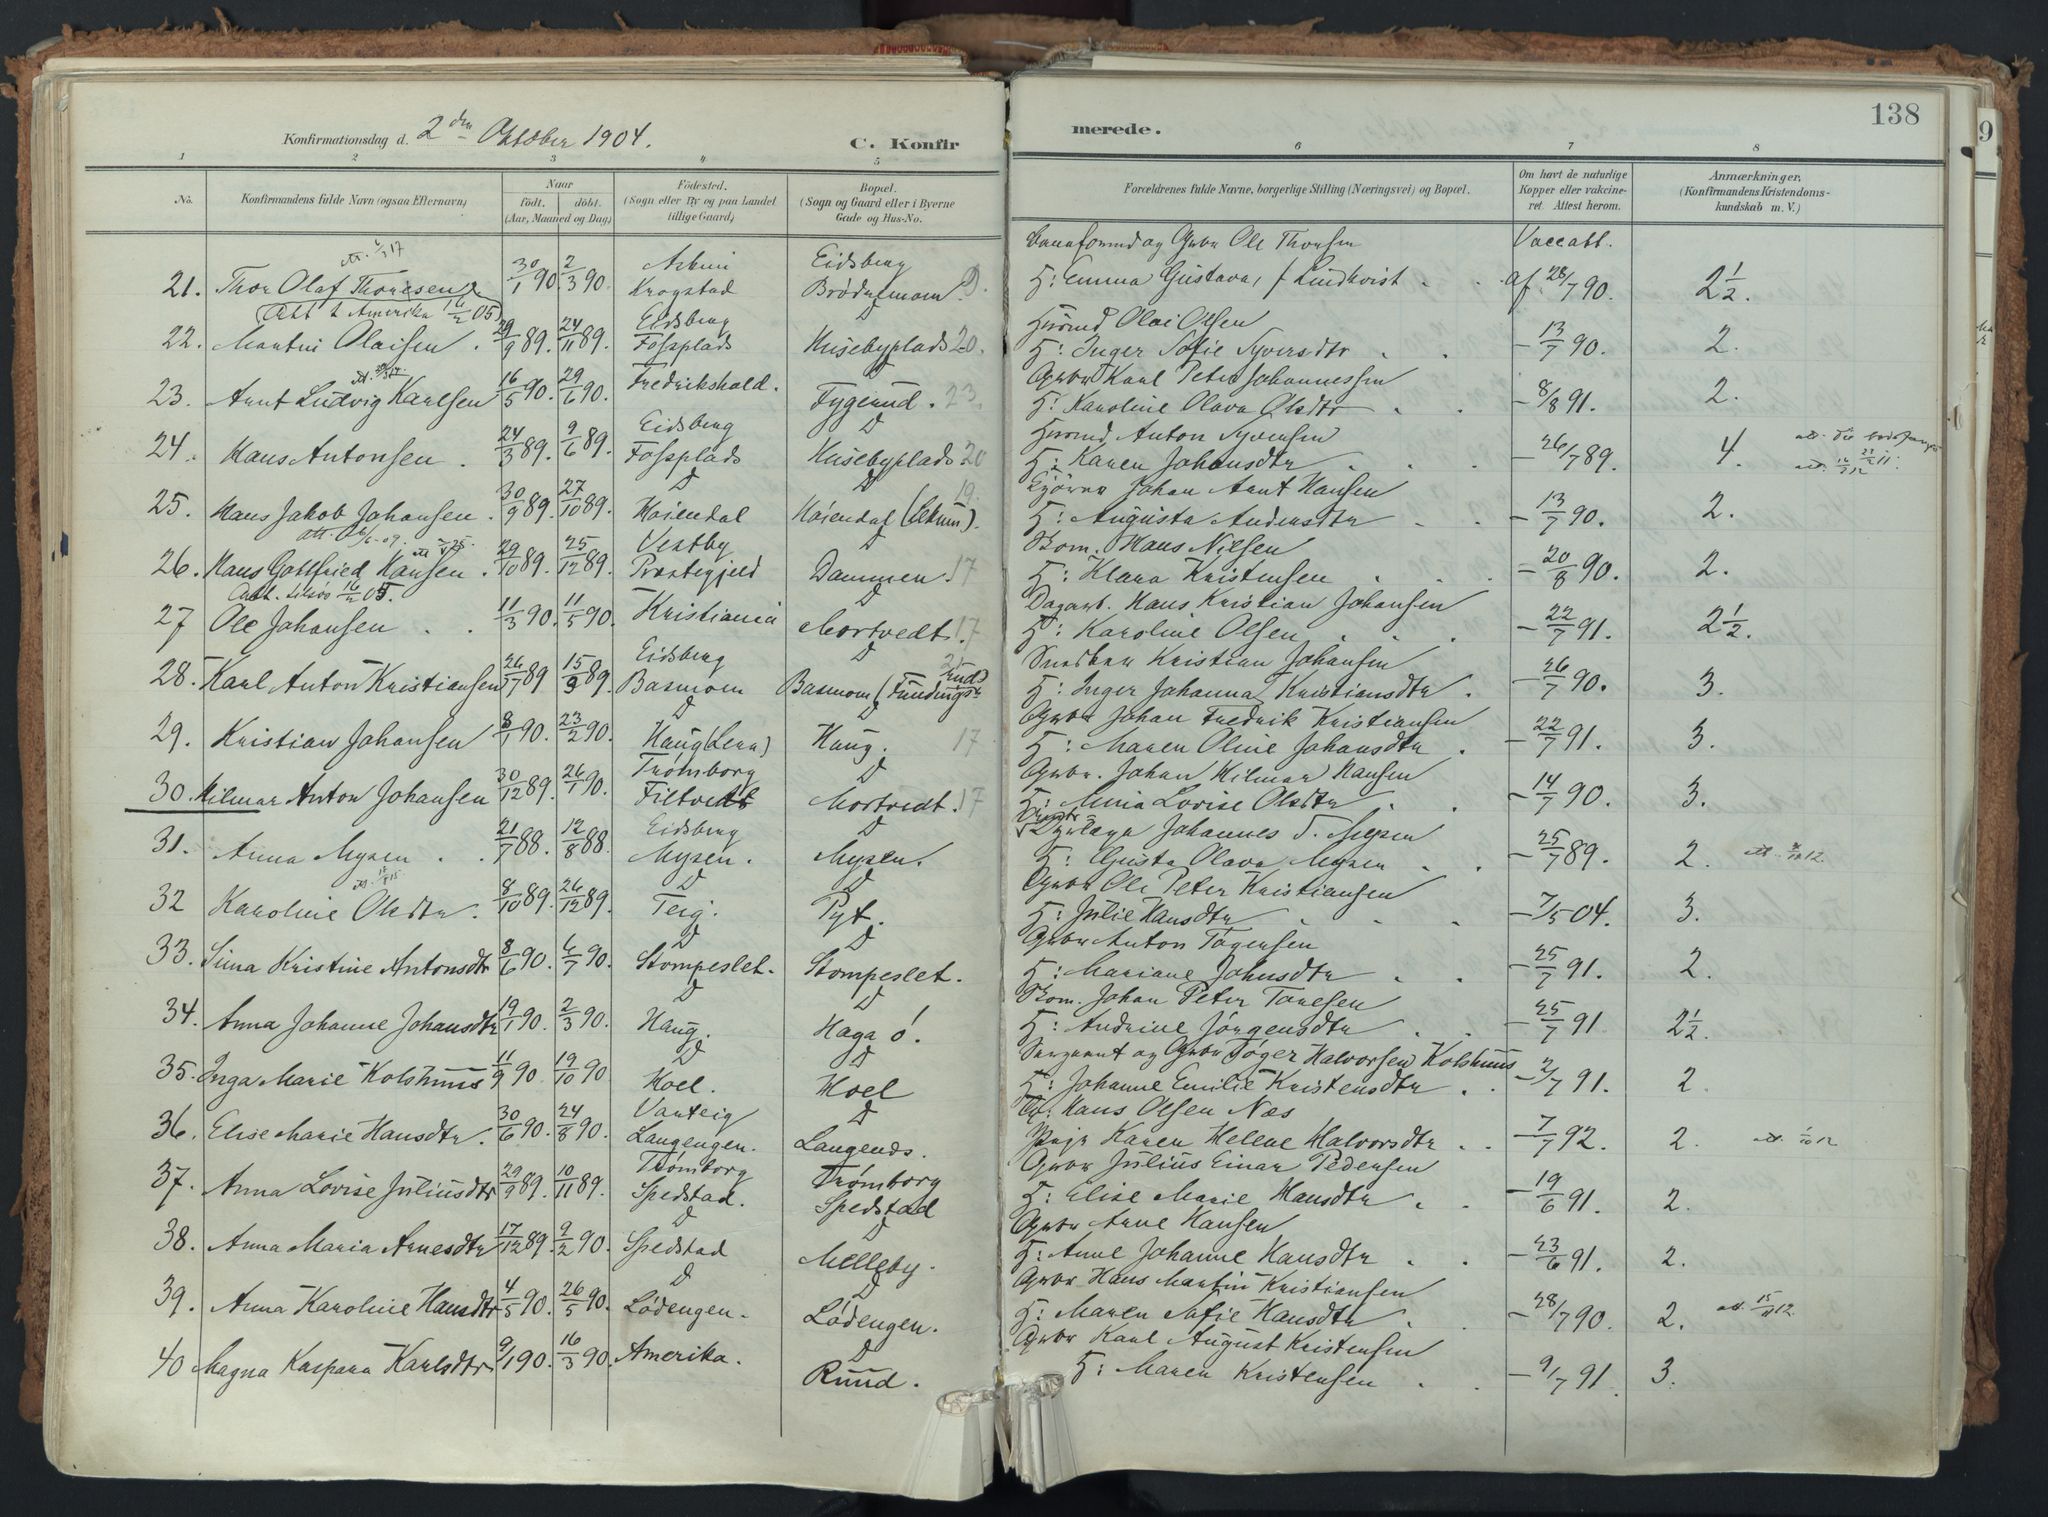 138
Konfirmationsdag d. 2den Oktober 1904.
C. Konfirmerede.
1 2 3 4 5 6 7 8
No.
Konfirmandens fulde Navn (ogsaa Efternavn).
Naar født. døbt. (Aar, Maaned og Dag)
Fødested. (Sogn eller By og paa Landet tillige Gaard)
Bopæl. (Sogn og Gaard eller i Byerne Gade og Hus-No.
Forældrenes fulde Navne, borgerlige Stilling (Næringsvei) og Bopæl.
Om havt de naturlige Kopper eller vakcineret. Attest herom.
Anmærkninger. (Konfirmandens Kristendomskundskab m. V.)
Eidsberg Gbr Ole Thoresen Vaccatt.
21. Thor Olaf Thoresen 30/1 90 2/3 90 Krogstad H: Emma Gustava, f. Lindkvist af 28/7 90. 2 1/2.
Att t Amerika 16/2 05 Eidsberg Husmd Olai Olsen
22. Martin Olaisen 29/9 89. 24/11 89. Fossplads Husebyplads 20. H: Inger Sofie Syversdtr 13/7 90. 2.
Gbr Karl Peter Johannessen
23. Arnt Ludvig Karlsen 16/5 90. 29/6 90. Fredrikshald. Fygerud. 23. H: Karoline Olava Olsdtr 8/8 91. 2.
Eidsberg D Husmd Anton Syversen
24. Hans Antonsen 24/3 89. 9/6 89. Fossplads Husebyplads 20 H: Karen Johansdtr 26/7 89. 4.
D D 19. Johan Arnt Hansen
25. Hans Jakob Johansen 30/9 89. 27/10 89. Høiendal Høiendal H: Augusta Andersdtr 13/7 90. 2.
Vestby D Hans Nilsen
26. Hans Gottfried Hansen 29/10 89. 25/12 89. Præstegjeld Dammen 17 H: Klara Kristensen 20/8 90. 2.
16/2 05. D Dagarb. Hans Kristian Johansen
27 Ole Johansen 11/3 90. 11/5 90. Kristiania Mortvedt. 17 H: Karoline Olsen 22/7 91. 2 1/2.
Eidsberg D Snedker Kristian Johansen
28. Karl Anton Kristiansen 26/7 89 15/9 89. Basmoen Basmoen H: Inger Johanna Kristiansdtr. 26/7 90. 3.
D D Gbr Johan Fredrik Kristiansen
29. Kristian Johansen 8/1 90. 23/2 90. Haug Haug. 17 H: Maren Oline Johansdtr. 22/7 91. 3.
Trømborg D Gbr. Johan Hilmar Hansen
30. Hilmar Anton Johansen 30/12 89. 26/1 90. Filtvedt Mortvedt. 17 H: Lovise Olsdtr 14/7 90. 3.
Eidsberg D Dyrlæge Johannes T. Mysen
31. Anna Mysen 21/7 88. 12/8 88. Mysen. Mysen. H: Gusta Olava Mysen 25/7 89. 2.
D D Gbr Ole Peter Kristiansen
32 Karoline Olsdtr. 8/10 89. 26/12 89. Teig. Pyt. H: Julie Hansdtr 7/5 04. 3.
D D Gbr Anton Tøgersen
33. Sina Kristine Antonsdtr 8/6 90. 6/7 90. Stompeslet. Stompeslet. H: Mariane Johnsdtr 25/7 91. 2.
D D Johan Peter Toresen
34. Anna Johanne Johansdtr 19/1 90. 2/3 90. Haug. Haga ó. H: Andrine Jørgensdtr 25/7 91 2 1/2.
D D Sergeant og Gbr Tøger Halvorsen Kolshuus
35. Inga Marie Kolshuus 11/9 90 19/10 90 Hoel. Hoel H: Johanne Emilie Kristensdtr 2/7 91. 2
Varteig D Hans Olsen Næs
36. Elise Marie Hansdtr. 30/6 90. 24/8 90. Langengen. Langends. Pige Karen Helene Halvorsdtr 7/7 92. 2. 1/10 12
Trømborg Trømborg Gbr Julius Einar Pedersen
37. Anna Lovise Juliusdtr 29/9 89. 10/11 89. Spedstad. Spedstad H: Elise Marie Hansdtr 19/6 91. 2.
D D Gbr Arne Hansen
38. Anna Maria Arnesdtr 17/12 89. 9/2 90. Spedstad Melleby. H: Anne Johanne Hansdtr 23/6 91. 2.
D D Gbr Hans Martin Kristiansen
39. Anna Karoline Hansdtr 4/5 90. 26/5 90. Lødengen. Lødengen. H: Maren Sofie Hansdtr 28/7 90. 2.
D Gbr Karl August Kristensen
40 Magna Kaspara Karlsdtr 9/1 90. 16/3 90. Amerika. Ruud. H: Maren Kristensen 9/7 91. 3.